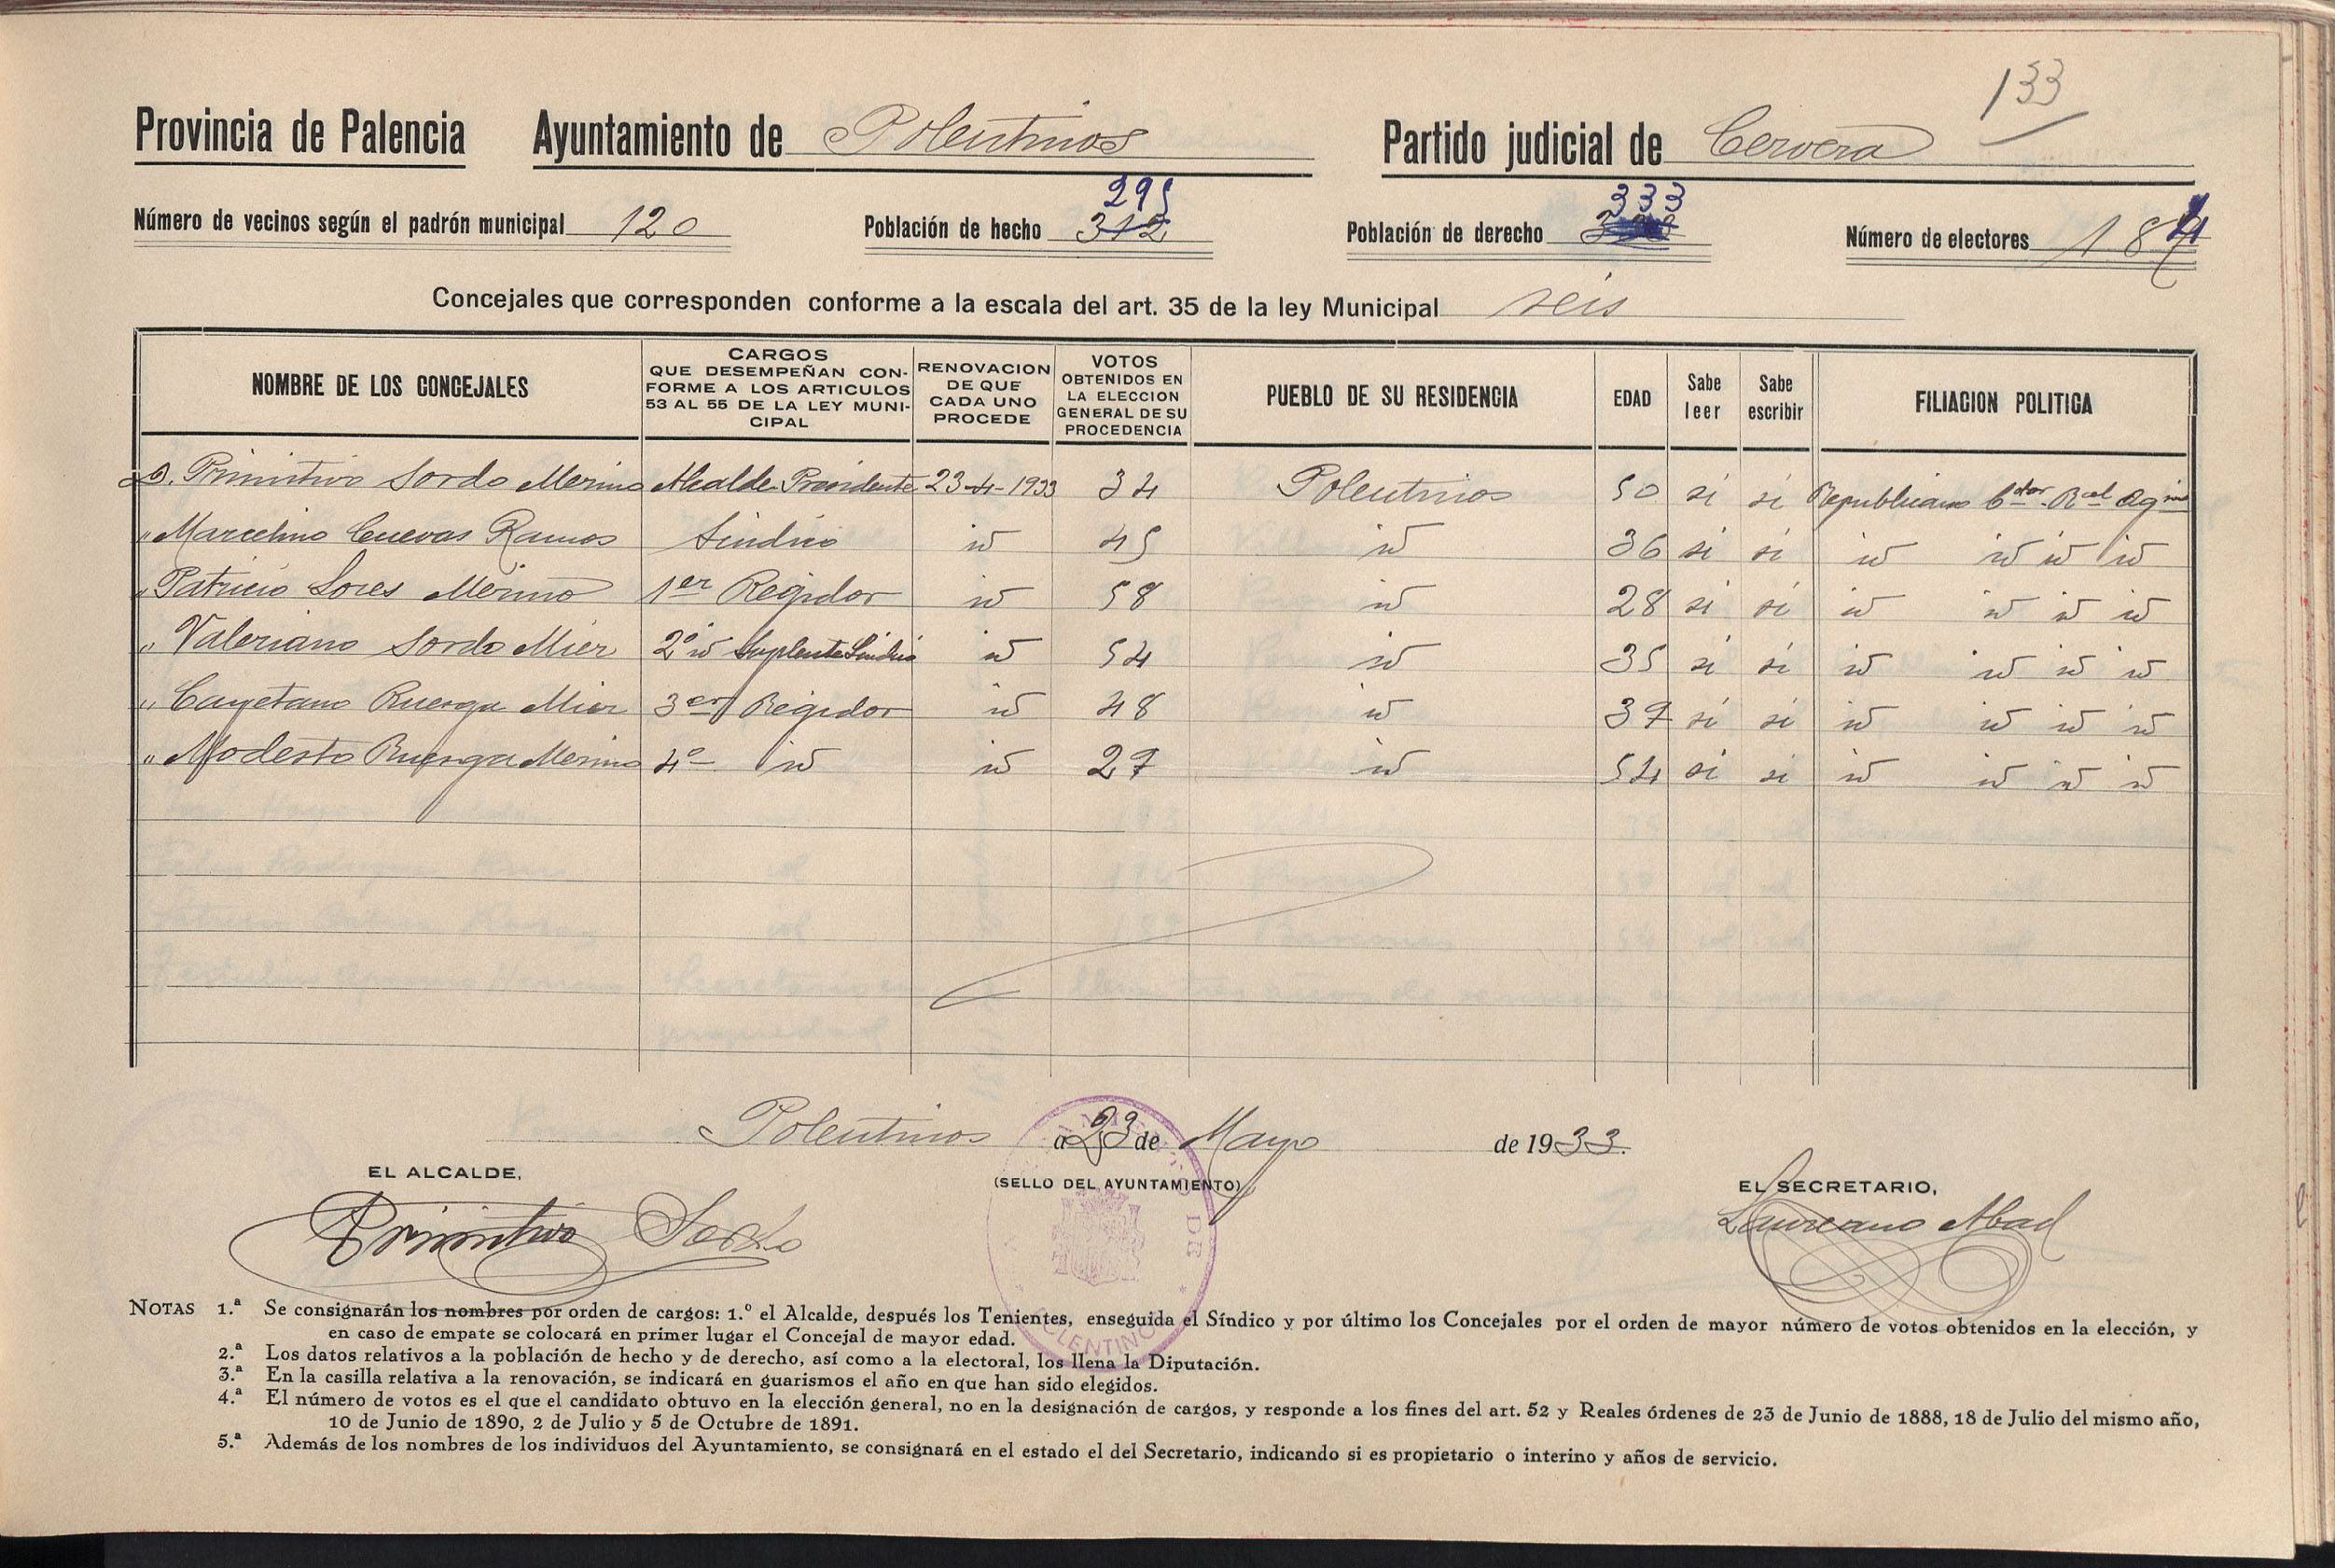 133
Provincia de Palencia Ayuntamiento de Polentinos Partido judicial de Cervera
295 333
Número de vecinos según el padrón municipal 120 Población de hecho 312 Población de derecho Número de electores 184
Concejales que corresponden conforme a la escala del art. 35 de la ley Municipal seis
NOMBRE DE LOS CONCEJALES
CARGOS
QUE DESEMPEÑAN CON-
FORME A LOS ARTICULOS
53 AL 55 DE LA LEY MUNI-
CIPAL
RENOVACION
DE QUE
CADA UNO
PROCEDE
VOTOS
OBTENIDOS EN
LA ELECCION
GENERAL DE SU
PROCEDENCIA
PUEBLO DE SU RESIDENCIA
EDAD
Sabe
leer
Sabe
escribir
FILIACION POLITICA
D. Primitivo Sordo Merino Alcalde Presidente 23-4-1933 34 Polentinos 50 si si Republicano Cdor. Ral Agrio
" Marcelino Cuevas Ramos Sindico id 45 id 36 si si id id id id
" Patricio Sores Merino 1er Regidor id 58 id 28 si si id id id id
" Valeriano Sordo Mier 2º id Suplente Sindico id 54 id 35 si si id id id id
" Cayetano Ruesga Mier 3er Regidor id 48 id 37 si si id id id id
" Modesto Ruesga Merino 4º id id 27 id 54 si si id id id id
Polentinos a 23 de Mayo de 1933.
EL ALCALDE,
(SELLO DEL AYUNTAMIENTO)
EL SECRETARIO,
Primitivo Sordo
Laureano Abad
NOTAS 1.ª Se consignarán los nombres por orden de cargos: 1.º el Alcalde, después los Tenientes, enseguida el Síndico y por último los Concejales por el orden de mayor número de votos obtenidos en la elección, y
en caso de empate se colocará en primer lugar el Concejal de mayor edad.
2.ª Los datos relativos a la población de hecho y de derecho, así como a la electoral, los llena la Diputación.
3.ª En la casilla relativa a la renovación, se indicará en guarismos el año en que han sido elegidos.
4.ª El número de votos es el que el candidato obtuvo en la elección general, no en la designación de cargos, y responde a los fines del art. 52 y Reales órdenes de 23 de Junio de 1888, 18 de Julio del mismo año,
10 de Junio de 1890, 2 de Julio y 5 de Octubre de 1891.
5.ª Además de los nombres de los individuos del Ayuntamiento, se consignará en el estado el del Secretario, indicando si es propietario o interino y años de servicio.